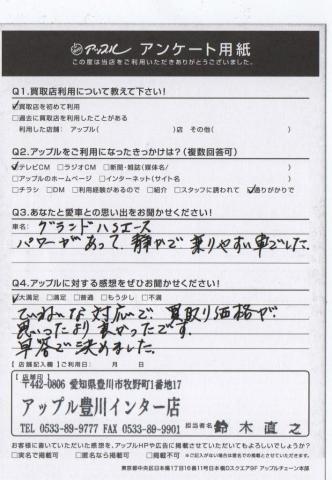 アップル アンケート用紙
この度は当店をご利用いただきありがとうございました。
Q1.買取店利用について教えて下さい！
☑買取店を初めて利用
□過去に買取店を利用したことがある
利用した店舗： アップル（ ）店 その他（ ）
Q2.アップルをご利用になったきっかけは？（複数回答可）
☑テレビCM □ラジオCM □新聞・雑誌（媒体名/ ）
□アップルのホームページ □インターネット（サイト名 ）
□チラシ □DM □利用経験があるので □紹介 □スタッフに誘われて ☑通りがかりで
Q3.あなたと愛車との思い出をお聞かせください！
車名： グランドハイエース
パワーがあって、静かで 乗りやすい車でした。
Q4.アップルに対する感想をぜひお聞かせください！
☑大満足 □満足 □普通 □もう少し □不満
ていねいな対応で、買取り価格が
思ったより良かったです。
即答で決めました。
【店舗記入欄】ご利用日： 月 日
【店舗印】
〒442-0806 愛知県豊川市牧野町1番地17
アップル豊川インター店
TEL 0533-89-9777 FAX 0533-89-9901
担当者名 鈴木 直之
お客様に書いていただいた感想を、アップルHPや広告に掲載させていただいてもよろしいでしょうか？
□実名で掲載可 □匿名なら掲載可 □掲載不可 ※ご記入がない場合は匿名での掲載とさせていただきます。
東京都中央区日本橋1丁目16番11号日本橋Dスクエア9F アップルチェーン本部